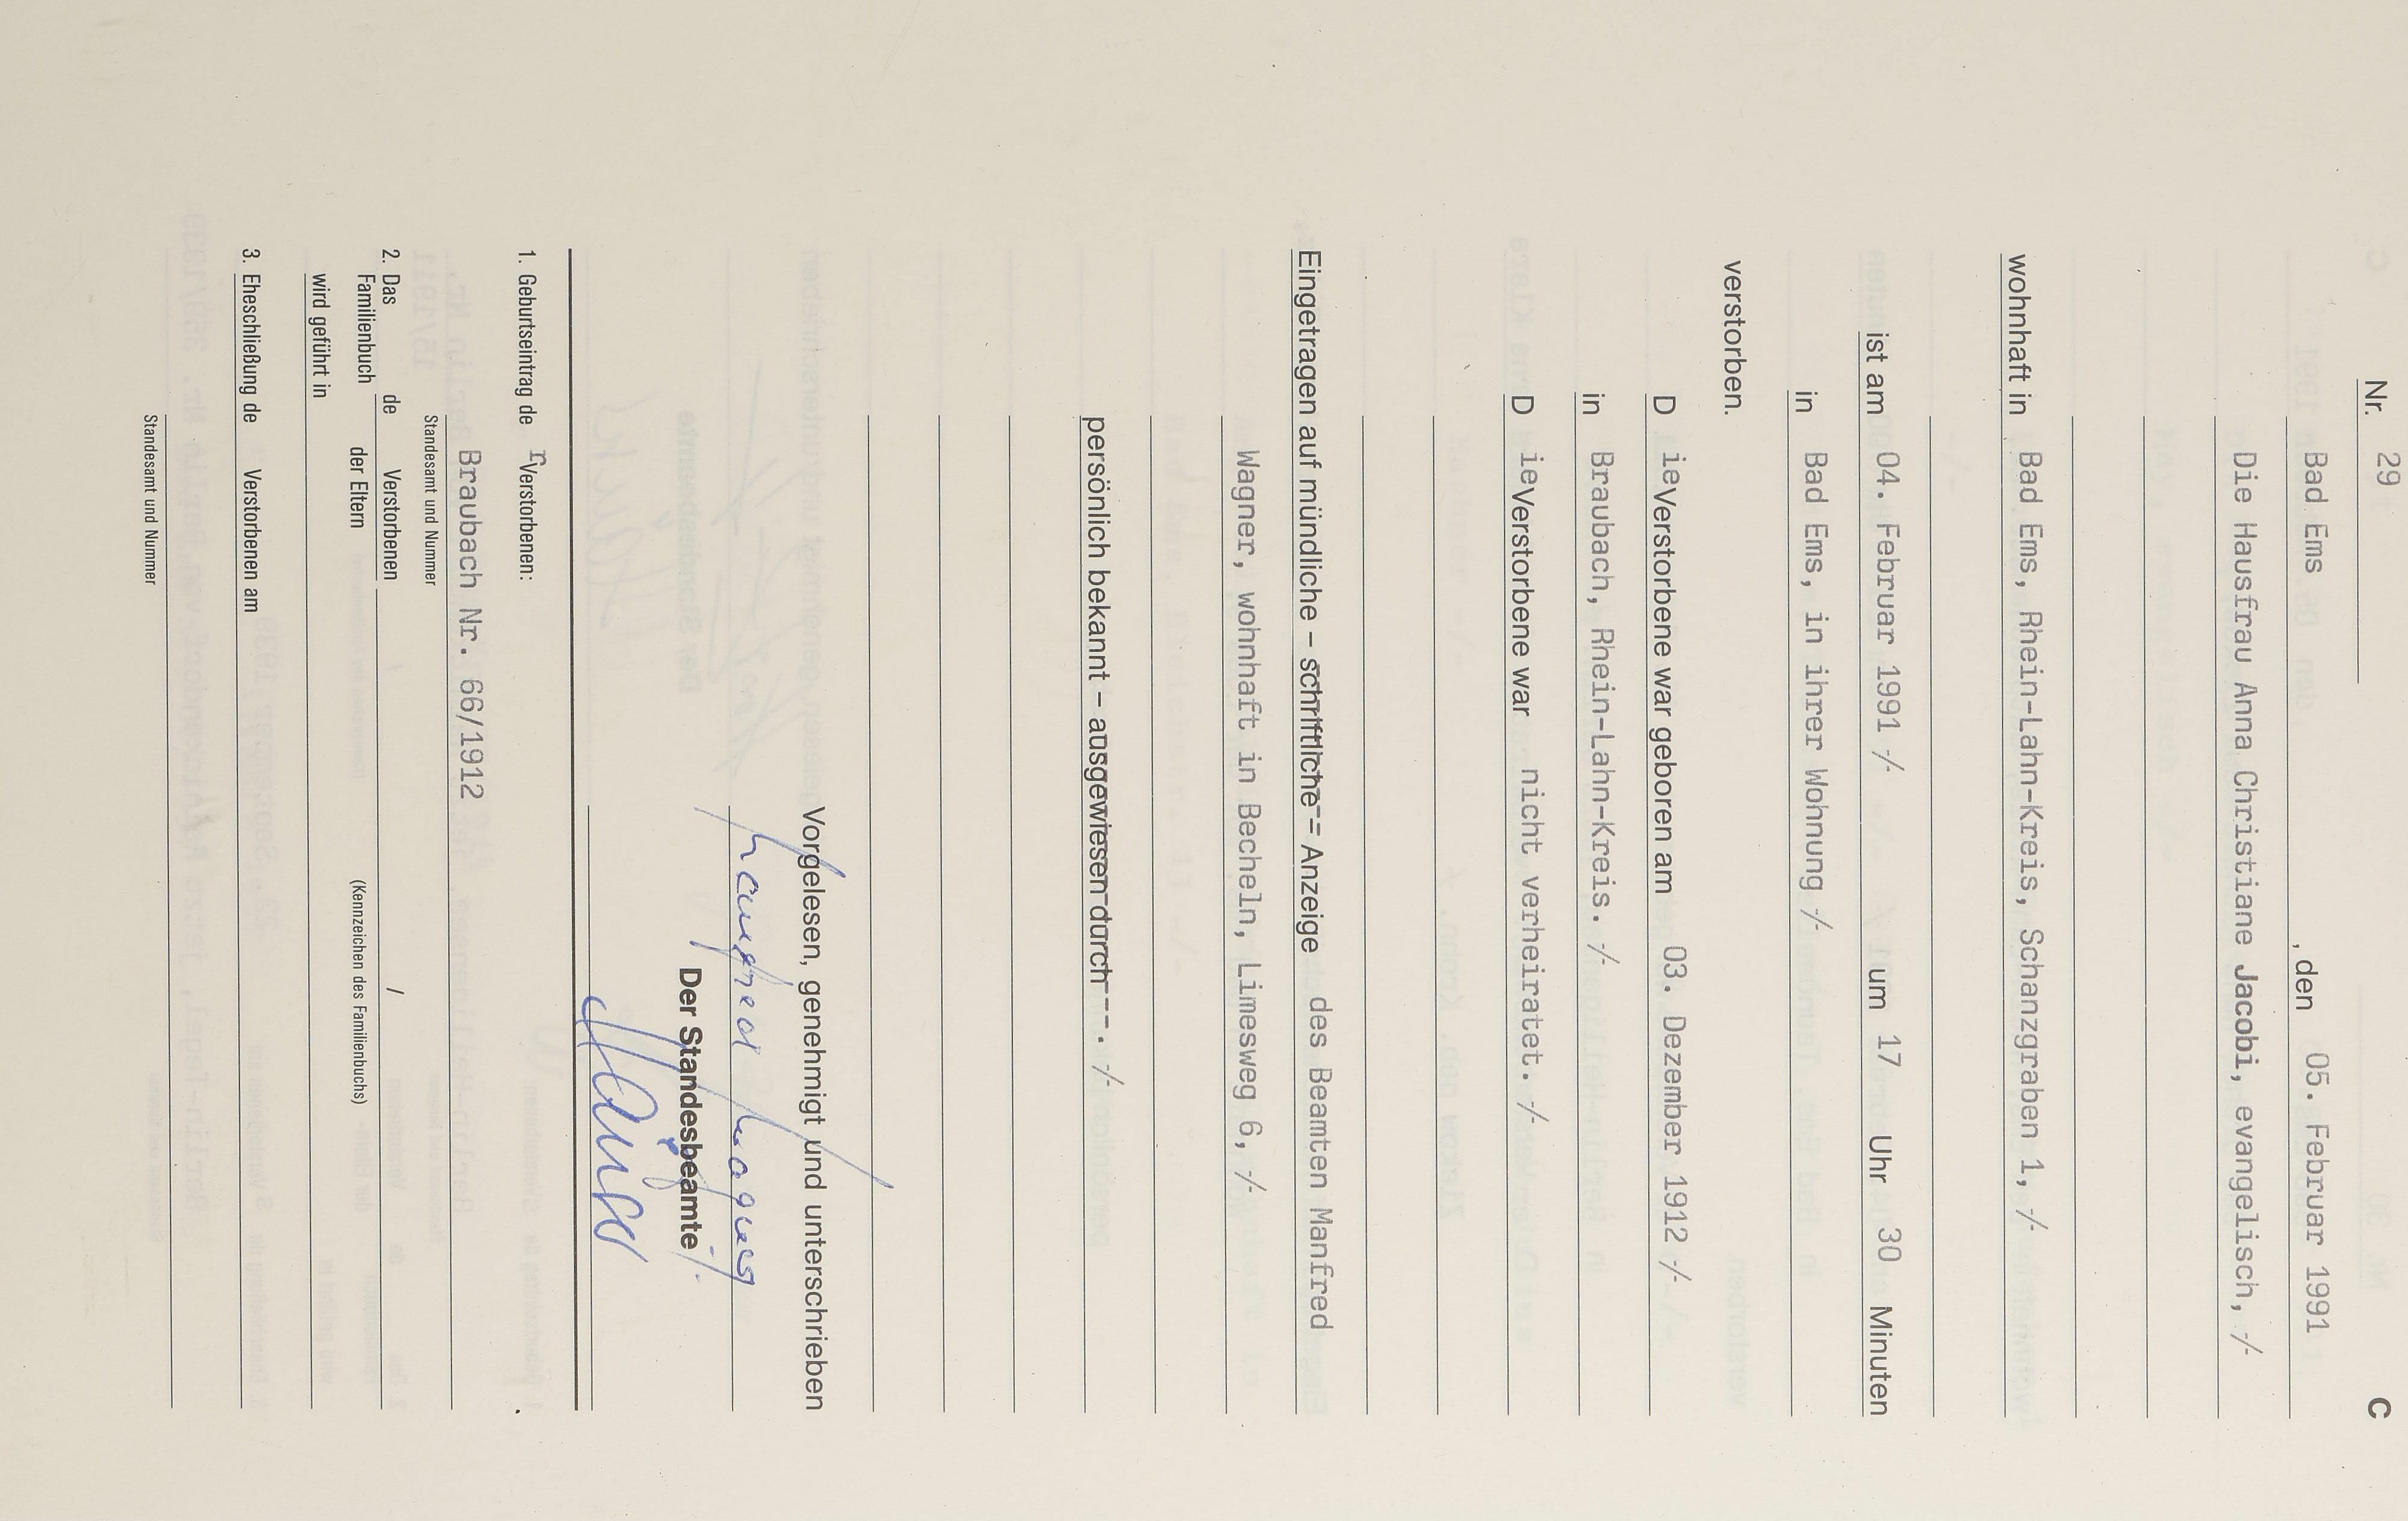 Nr. 29 C
Bad Ems , den 05. Februar 1991
Die Hausfrau Anna Christiane Jacobi, evangelisch, -/-
wohnhaft in Bad Ems, Rhein-Lahn-Kreis, Schanzgraben 1, -/-
ist am 04. Februar 1991 -/- um 17 Uhr 30 Minuten
in Bad Ems, in ihrer Wohnung -/-
verstorben.
D ie Verstorbene war geboren am 03. Dezember 1912 -/-
in Braubach, Rhein-Lahn-Kreis. -/-
D ie Verstorbene war nicht verheiratet. -/-
Eingetragen auf mündliche – schriftliche – Anzeige des Beamten Manfred
Wagner, wohnhaft in Becheln, Limesweg 6, -/-
persönlich bekannt – ausgewiesen durch ---. -/-
Vorgelesen, genehmigt und unterschrieben
Manfred Wagner
Der Standesbeamte
1. Geburtseintrag de r Verstorbenen:
Braubach Nr. 66/1912
Standesamt und Nummer
2. Das Familienbuch de Verstorbenen /
der Eltern (Kennzeichen des Familienbuchs)
wird geführt in
3. Eheschließung de Verstorbenen am
Standesamt und Nummer